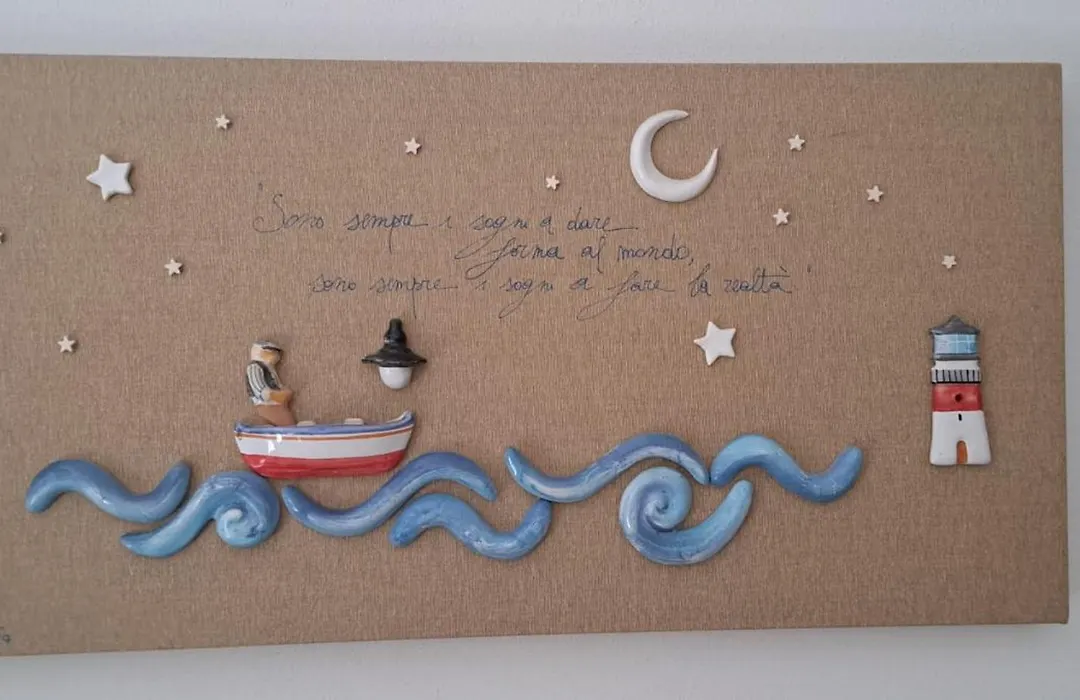 "Sono sempre i sogni a dare
forma al mondo,
sono sempre i sogni a fare la realtà"